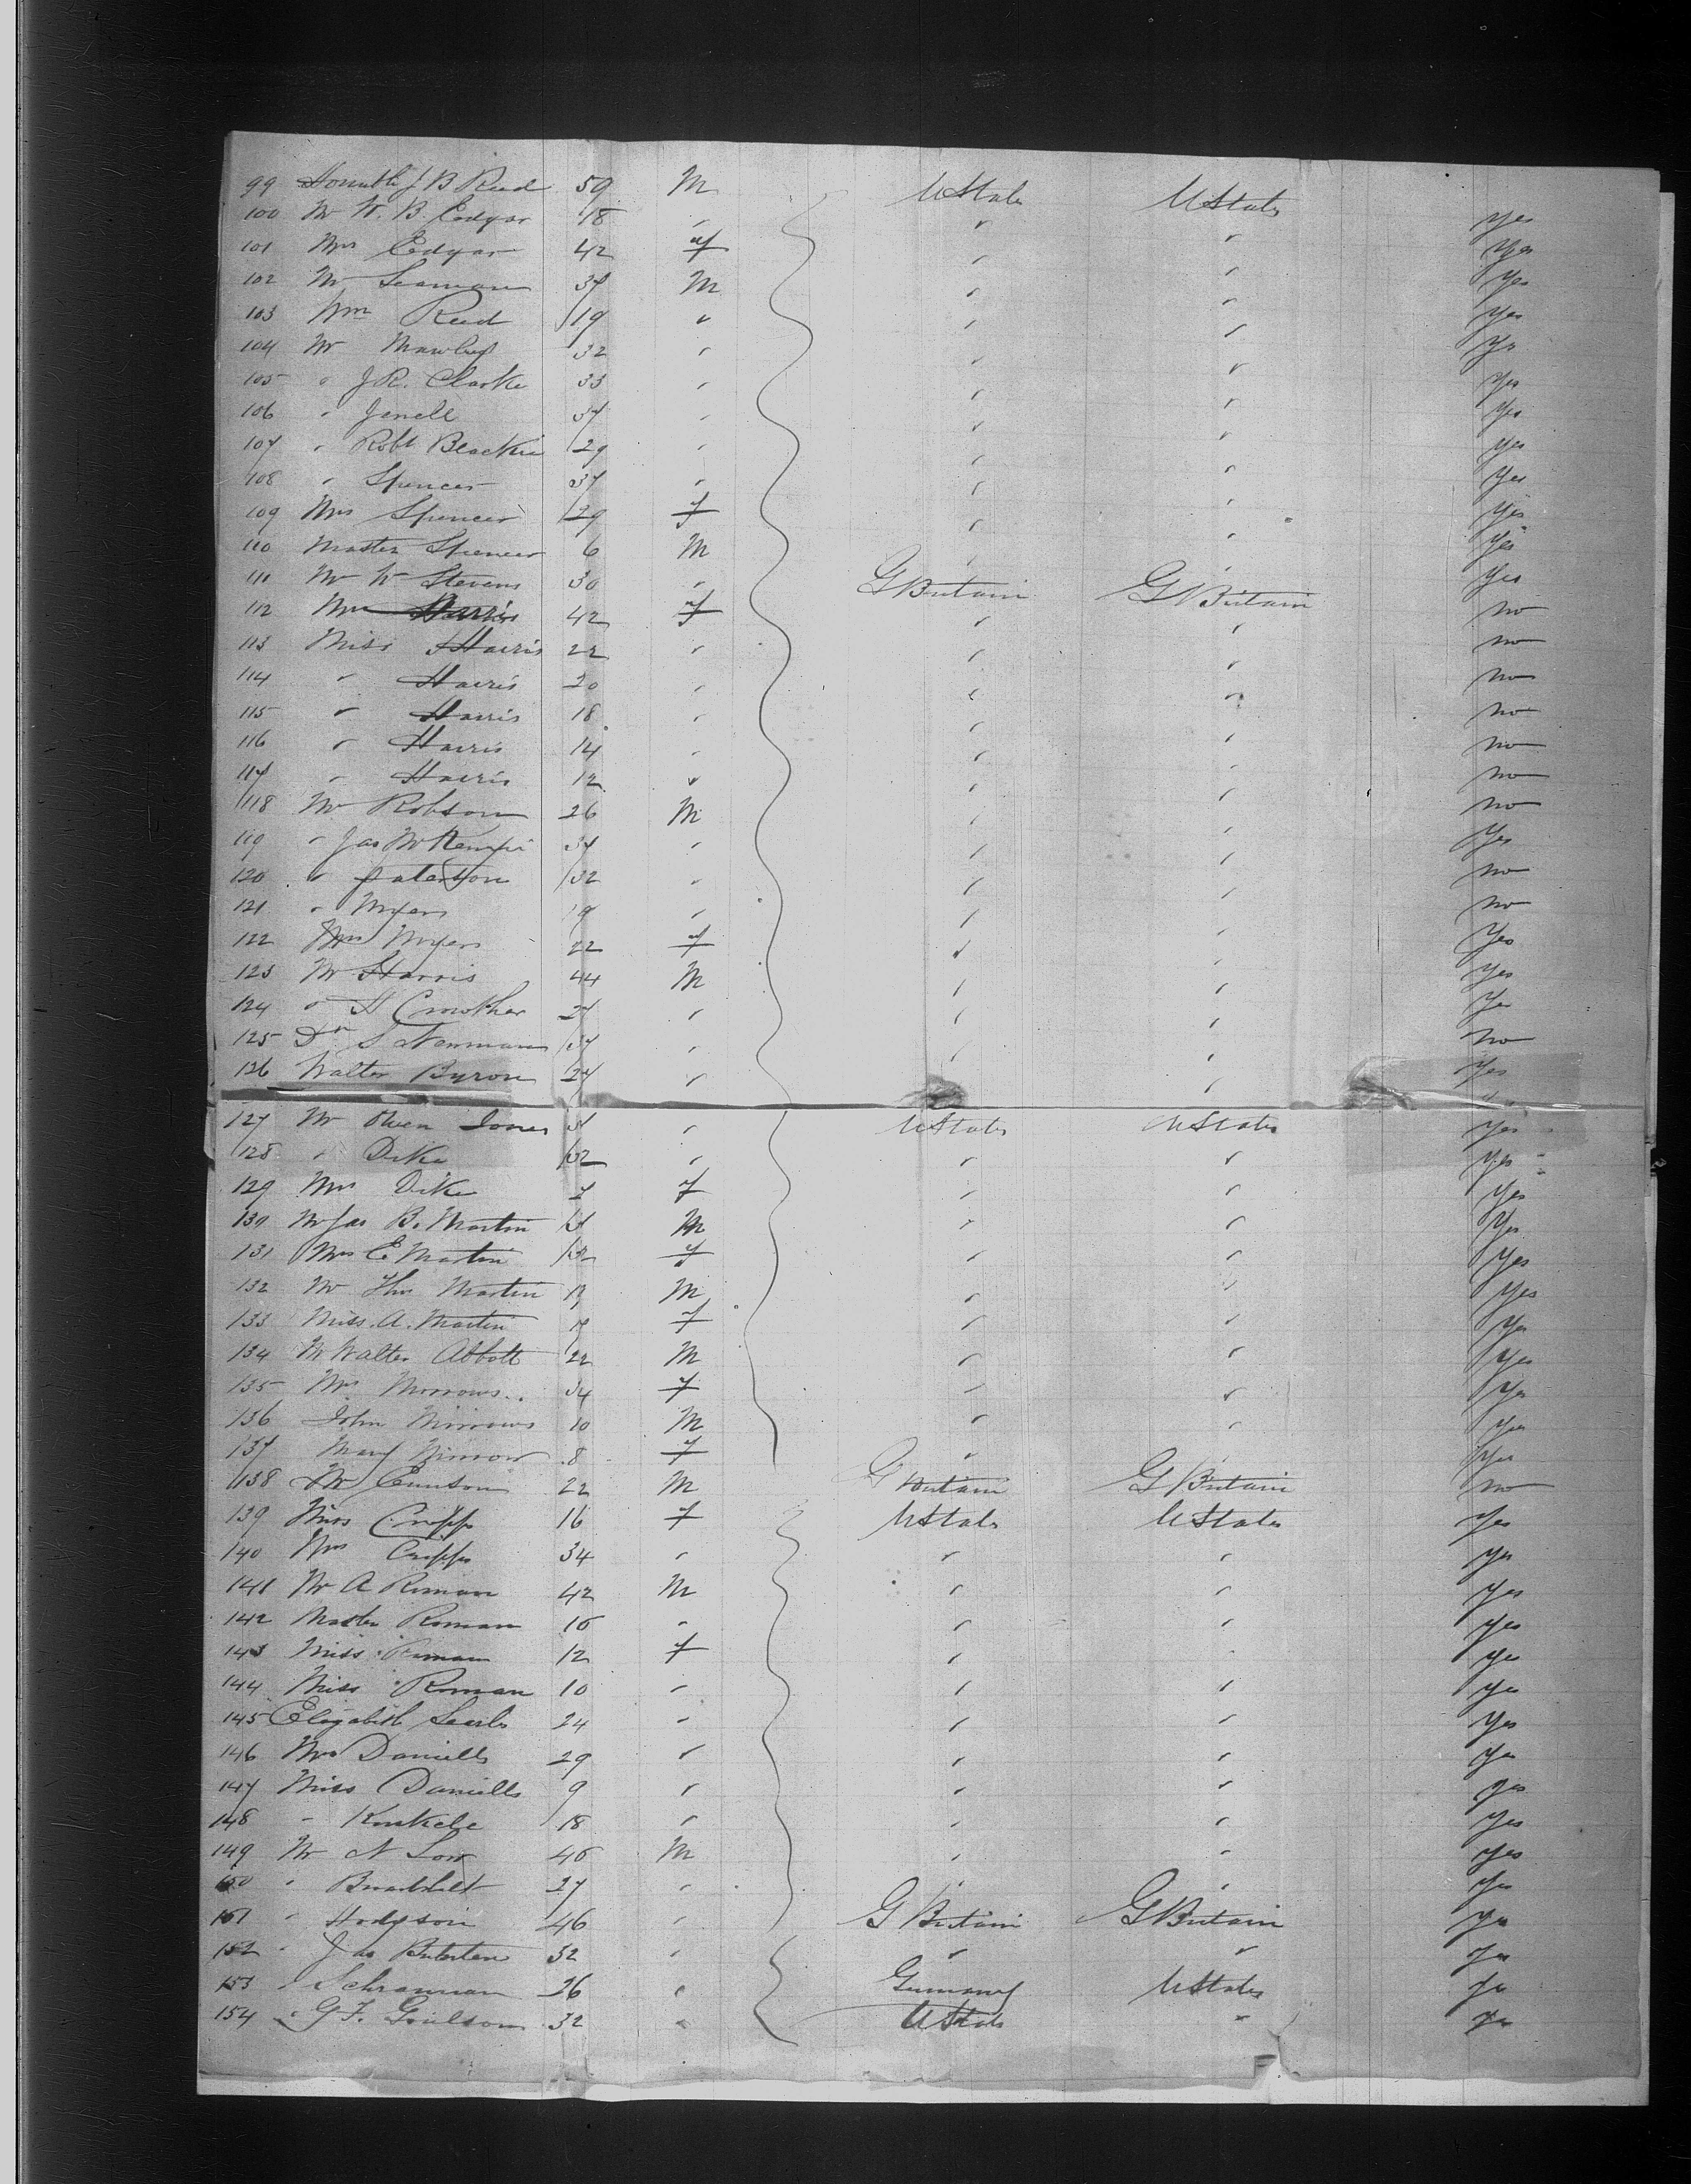 99 J B Reed 59 M UStates UStates yes
100 Mr W. B. Edgar 18 " " " yes
101 Mrs Edgar 42 f " " yes
102 Mr Seaman 37 M " " yes
103 Wm Reed 19 " " " yes
104 Mr 32 " " " ys
105 " J R. Clarke 33 " " " yes
106 " 37 " " " yes
107 " Robt Blackie 29 " " " yes
108 " Spencer 37 " " " yes
109 Mrs Spencer 29 f " " yes
110 Master Spencer 6 M " " yes
111 Mr W Stevens 30 " G Britain G Britain no
112 Mrs Harris 42 f " " no
113 Miss Harris 22 " " " no
114 " Harris 20 " " " no
115 " Harris 18 " " " no
116 " Harris 14 " " " no
117 " Harris 12 " " " no
118 Mr Robson 26 M " " yes
119 " Jas 34 " " " no
120 " Paterson 32 " " " no
121 " Myers 19 " " " yes
122 Mrs Myers 22 f " " yes
123 Mr Harris 44 M " " ye
124 " H Crowther 27 " " " no
125 Dr S Newman 37 " " " yes
126 Walter Byron 24 " " "
127 Mr Owen Jones " UStates UStates yes
128 " Dike 32 " " " yes
129 Mrs Dike f " " yes
130 Mr Jas B. Martin M " " yes
131 Mrs E Martin f " " yes
132 Mr Thos Martin M " " yes
133 Miss. A. Martin f " " yes
134 Mr Walter Abbott 22 M " " yes
135 Mrs Morrows 34 f " " yes
136 John Morrows 10 M " " yes
137 Mary 8 f " " yes
138 Mr 22 M G Britain G Britain no
139 Miss Cripps 16 f UStates UStates yes
140 Mrs Cripps 34 " " " yes
141 Mr A Roman 42 M " " yes
142 Master Roman 16 " " " yes
143 Miss Roman 12 f " " yes
144 Miss Roman 10 " " " yes
145 Elizabeth Searls 24 " " " yes
146 Mrs Daniells 29 " " " ye
147 Miss Daniells 9 " " " yes
148 " 18 " " " yes
149 Mr N Low 46 M " " yes
150 " 27 " " " yes
151 " Hodgson 46 " G Britain G Britain ye
152 " Jas 32 " " " yes
153 " Schramman 26 " Germany UStates ye
154 " G. F. 32 " UStates " ye